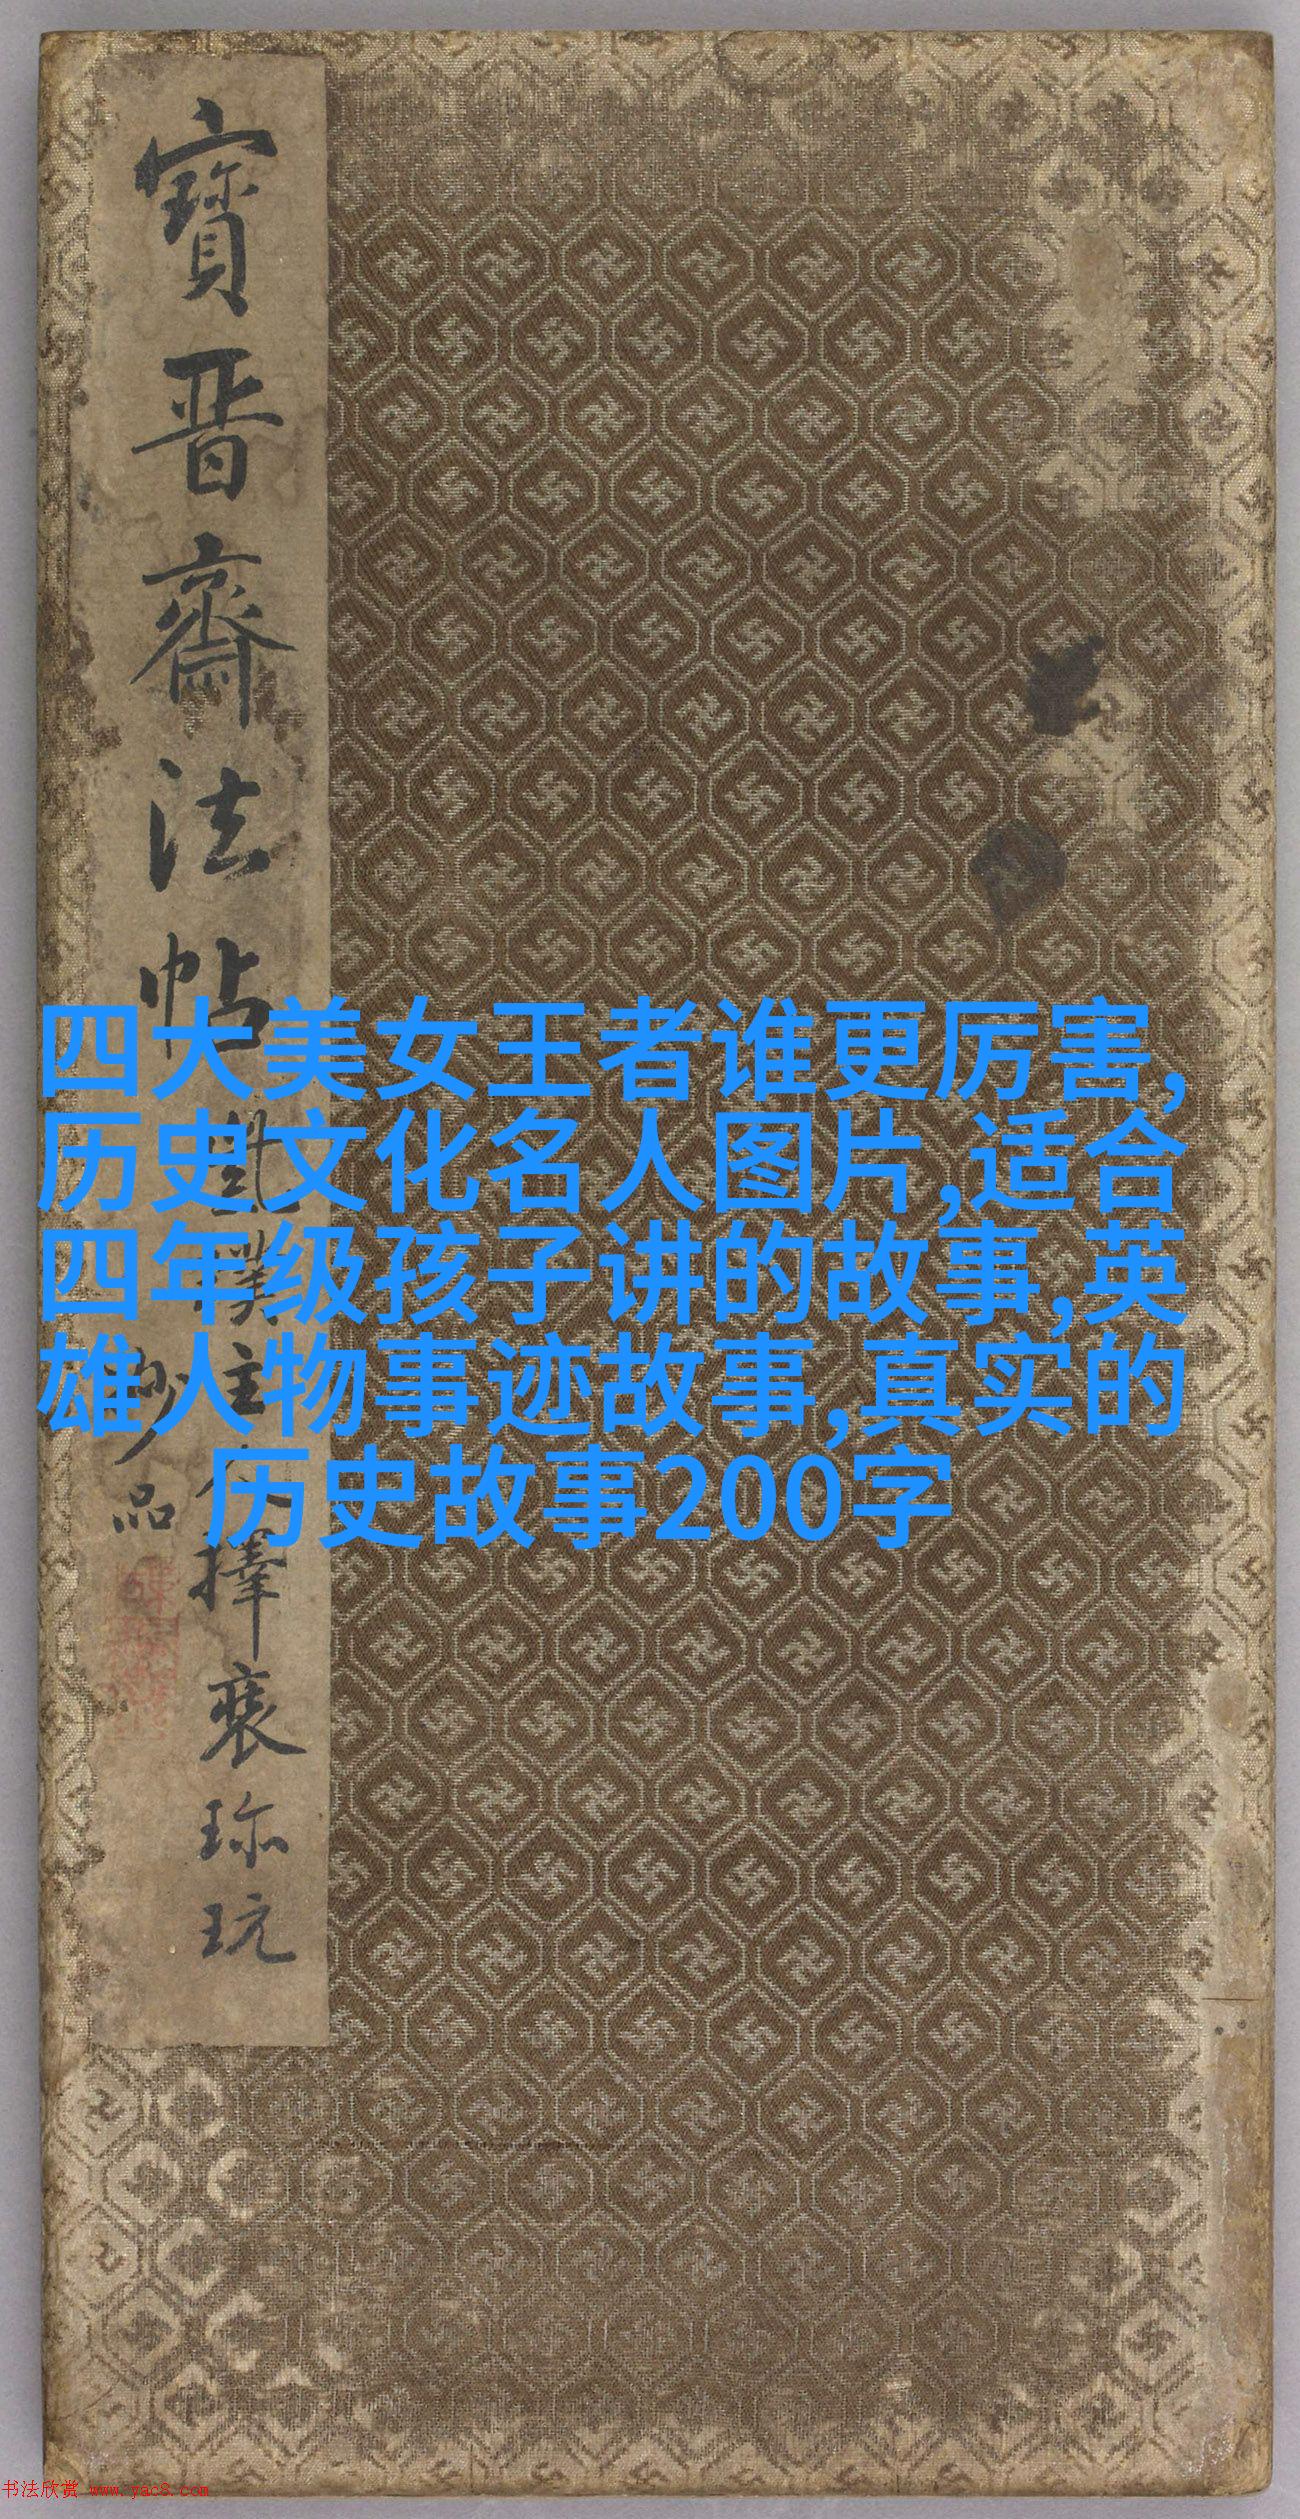 寶晋齋法帖
凱僕主人擇裘珎玩
妙品
四大美女王者谁更厉害,
历史文化名人图片,适合
四年级孩子讲的故事,英
雄人物事迹故事,真实的
历史故事200字
书法欣赏 www.yac8.com